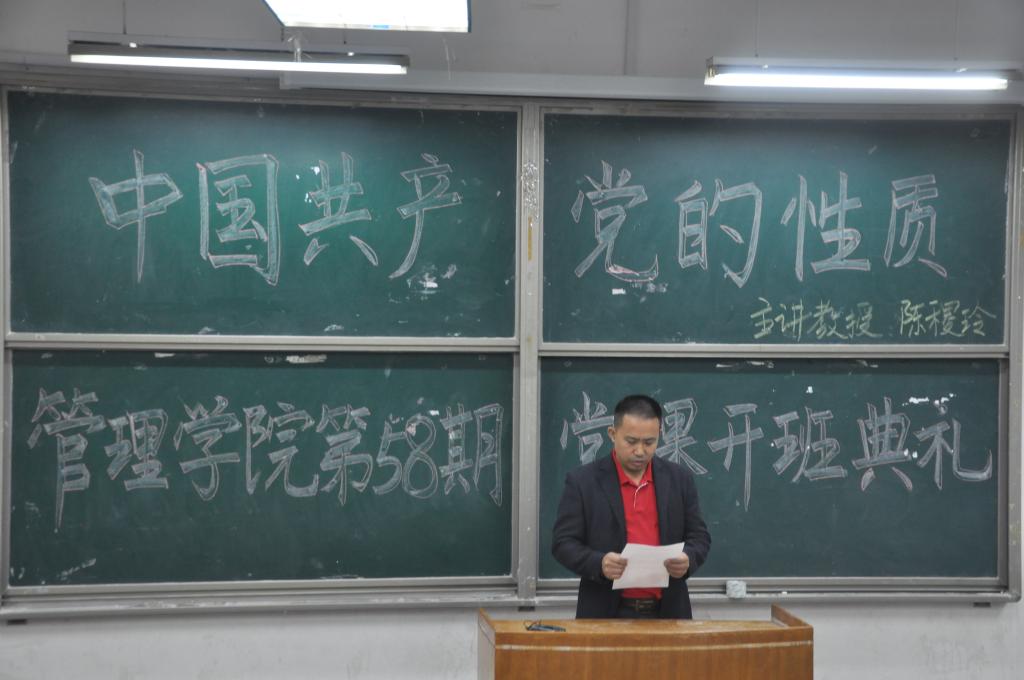 中国共产党的性质
主讲教授 陈稷玲
管理学院第58期党课开班典礼